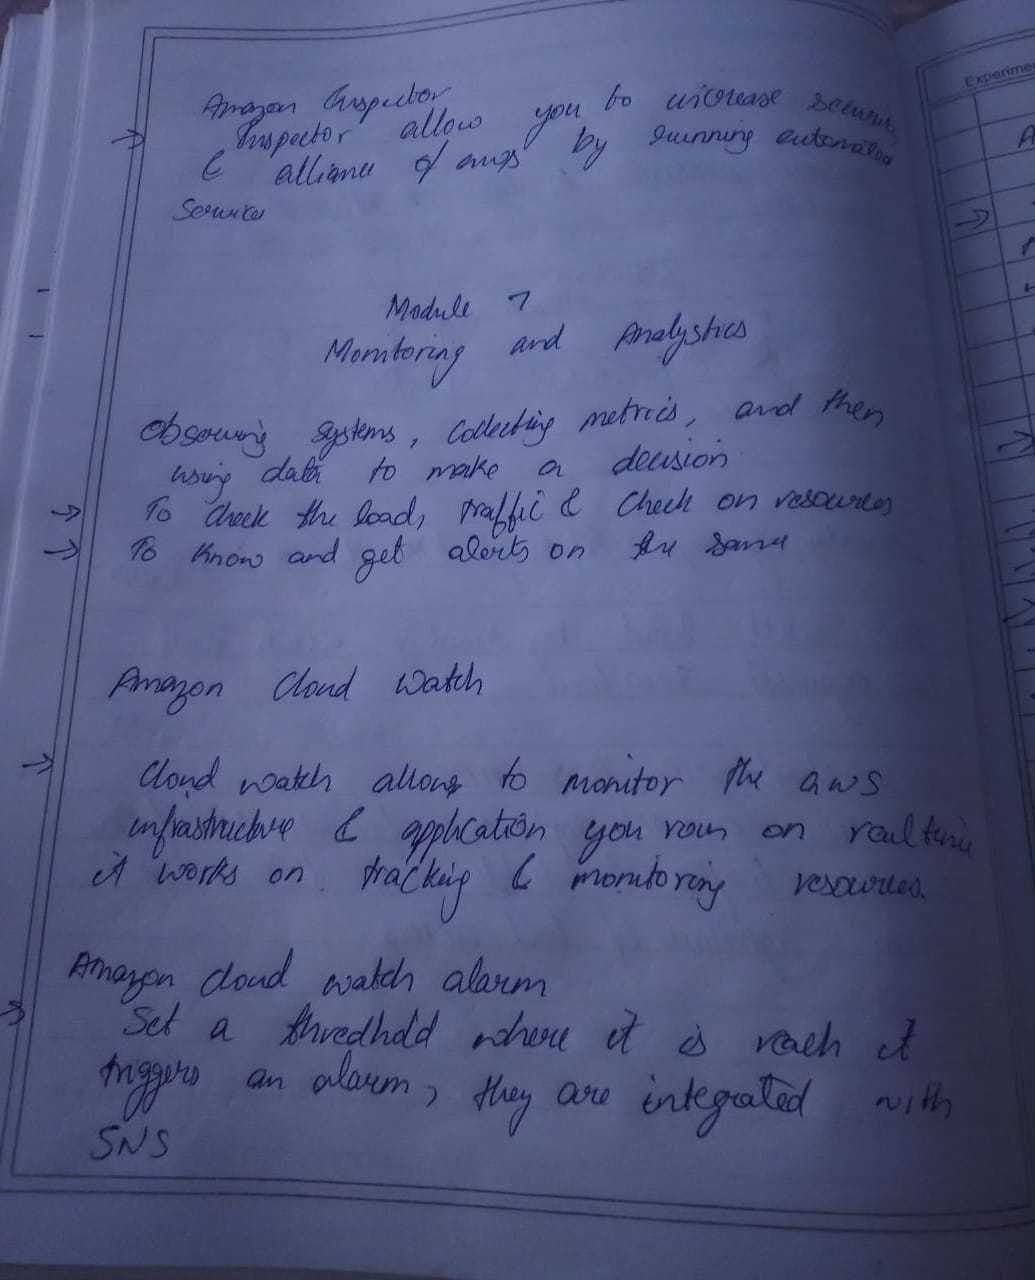 Experime
Amazon Inspector
→ Inspector allow you to increase security
& alliance of by running automated
Service
Module 7
Monitoring and Analystics
Observing systems, Collecting metrics, and then
using data to make a decision
→ To check the load, traffic & Check on resources
→ To know and get alerts on the same
Amazon Cloud Watch
→ Cloud watch allows to monitor the aws
infrastructure & application you run on realtime
it works on tracking & monitoring resources.
Amazon cloud watch alarm
→ Set a thredhold where it is reach it
triggers an alarm, they are integrated with
SNS